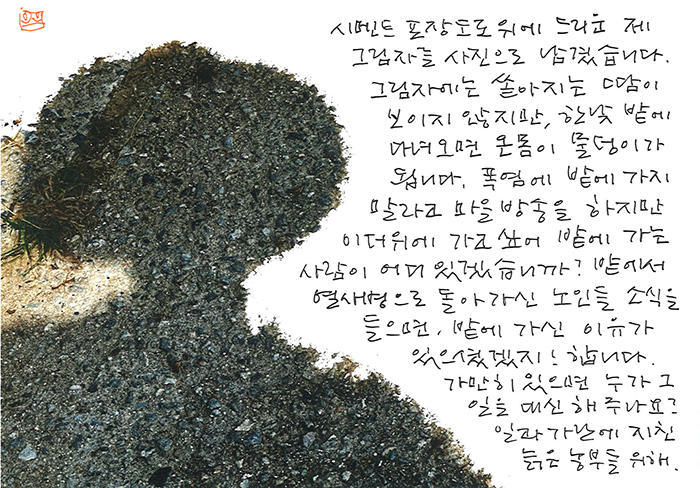 시멘트 포장도로 위에 드리운 제
그림자를 사진으로 남겼습니다.
그림자에는 쏟아지는 땀이
보이지 않지만, 한낮 밭에
다녀오면 온몸이 물덩이가
됩니다. 폭염에 밭에 가지
말라고 마을방송을 하지만
이더위에 가고 싶어 밭에 가는
사람이 어디 있겠습니까? 밭에서
열사병으로 돌아가신 노인들 소식을
들으면, 밭에 가신 이유가
있으셨겠지! 합니다.
가만히 있으면 누가 그
일을 대신 해 주나요?
일과 가난에 지친
늙은 농부들 위해.